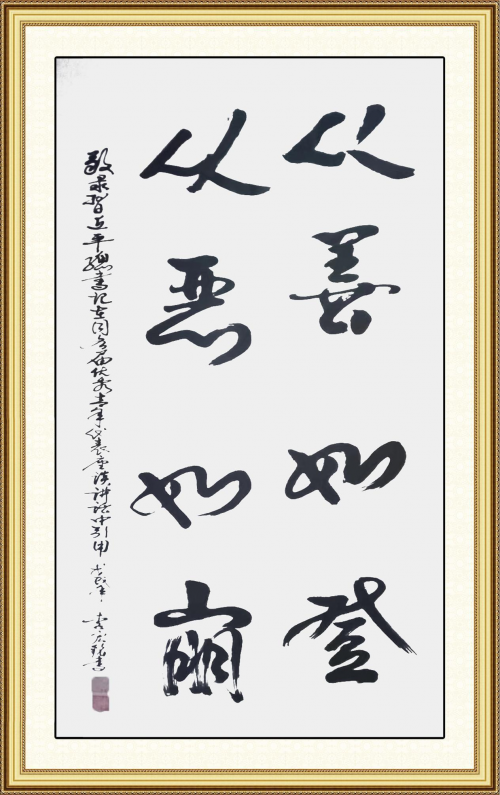 从善如登
从恶如崩
敬录习近平总书记在同各届优秀青年代表座谈讲话中引用